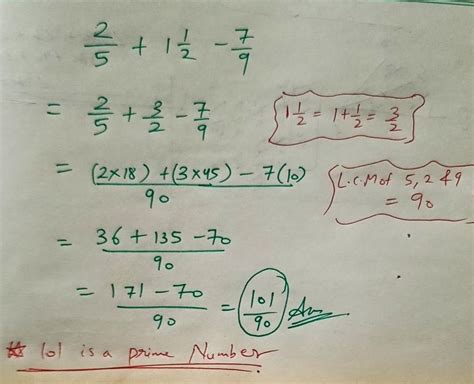 2/5 + 1 1/2 - 7/9
= 2/5 + 3/2 - 7/9
1 1/2 = 1 + 1/2 = 3/2
= (2×18) + (3×45) - 7(10) / 90
L.C.M of 5, 2 & 9
= 90
= 36 + 135 - 70 / 90
= 171 - 70 / 90 = 101/90 Ans
* 101 is a prime Number